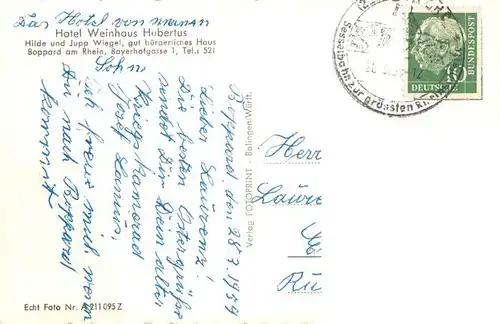 Das Hotel von meinem
Hotel Weinhaus Hubertus
Hilde und Jupp Wiegel, gut bürgerliches Haus
Boppard am Rhein, Bayerhofgasse 1, Tel.: 521
Sohn
Boppard, den 28.7.1959
Lieber Laurenz!
Die besten Ostergrüße
sendet Dir Dein alter
Kriegskamerad
Josef
Ich freue mich wenn
Du nach Boppard
kommst!
Verlag FOTOPRINT - Balingen/Württ.
Echt Foto Nr. A 211 095 Z
Sesselbahn zur grössten
DEUTSCHE
BUNDESPOST
10
Herr